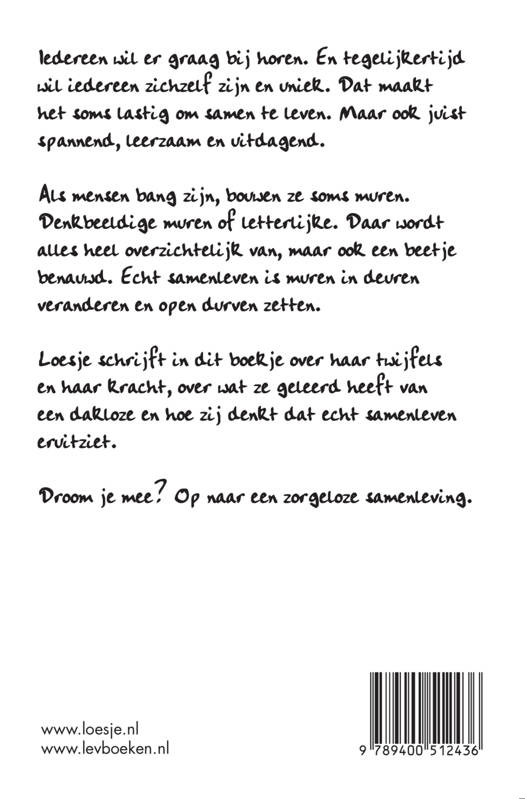 Iedereen wil er graag bij horen. En tegelijkertijd
wil iedereen zichzelf zijn en uniek. Dat maakt
het soms lastig om samen te leven. Maar ook juist
spannend, leerzaam en uitdagend.
Als mensen bang zijn, bouwen ze soms muren.
Denkbeeldige muren of letterlijke. Daar wordt
alles heel overzichtelijk van, maar ook een beetje
benauwd. Echt samenleven is muren in deuren
veranderen en open durven zetten.
Loesje schrijft in dit boekje over haar twijfels
en haar kracht, over wat ze geleerd heeft van
een dakloze en hoe zij denkt dat echt samenleven
eruitziet.
Droom je mee? Op naar een zorgeloze samenleving.
www.loesje.nl
www.levboeken.nl
9 789400 512436